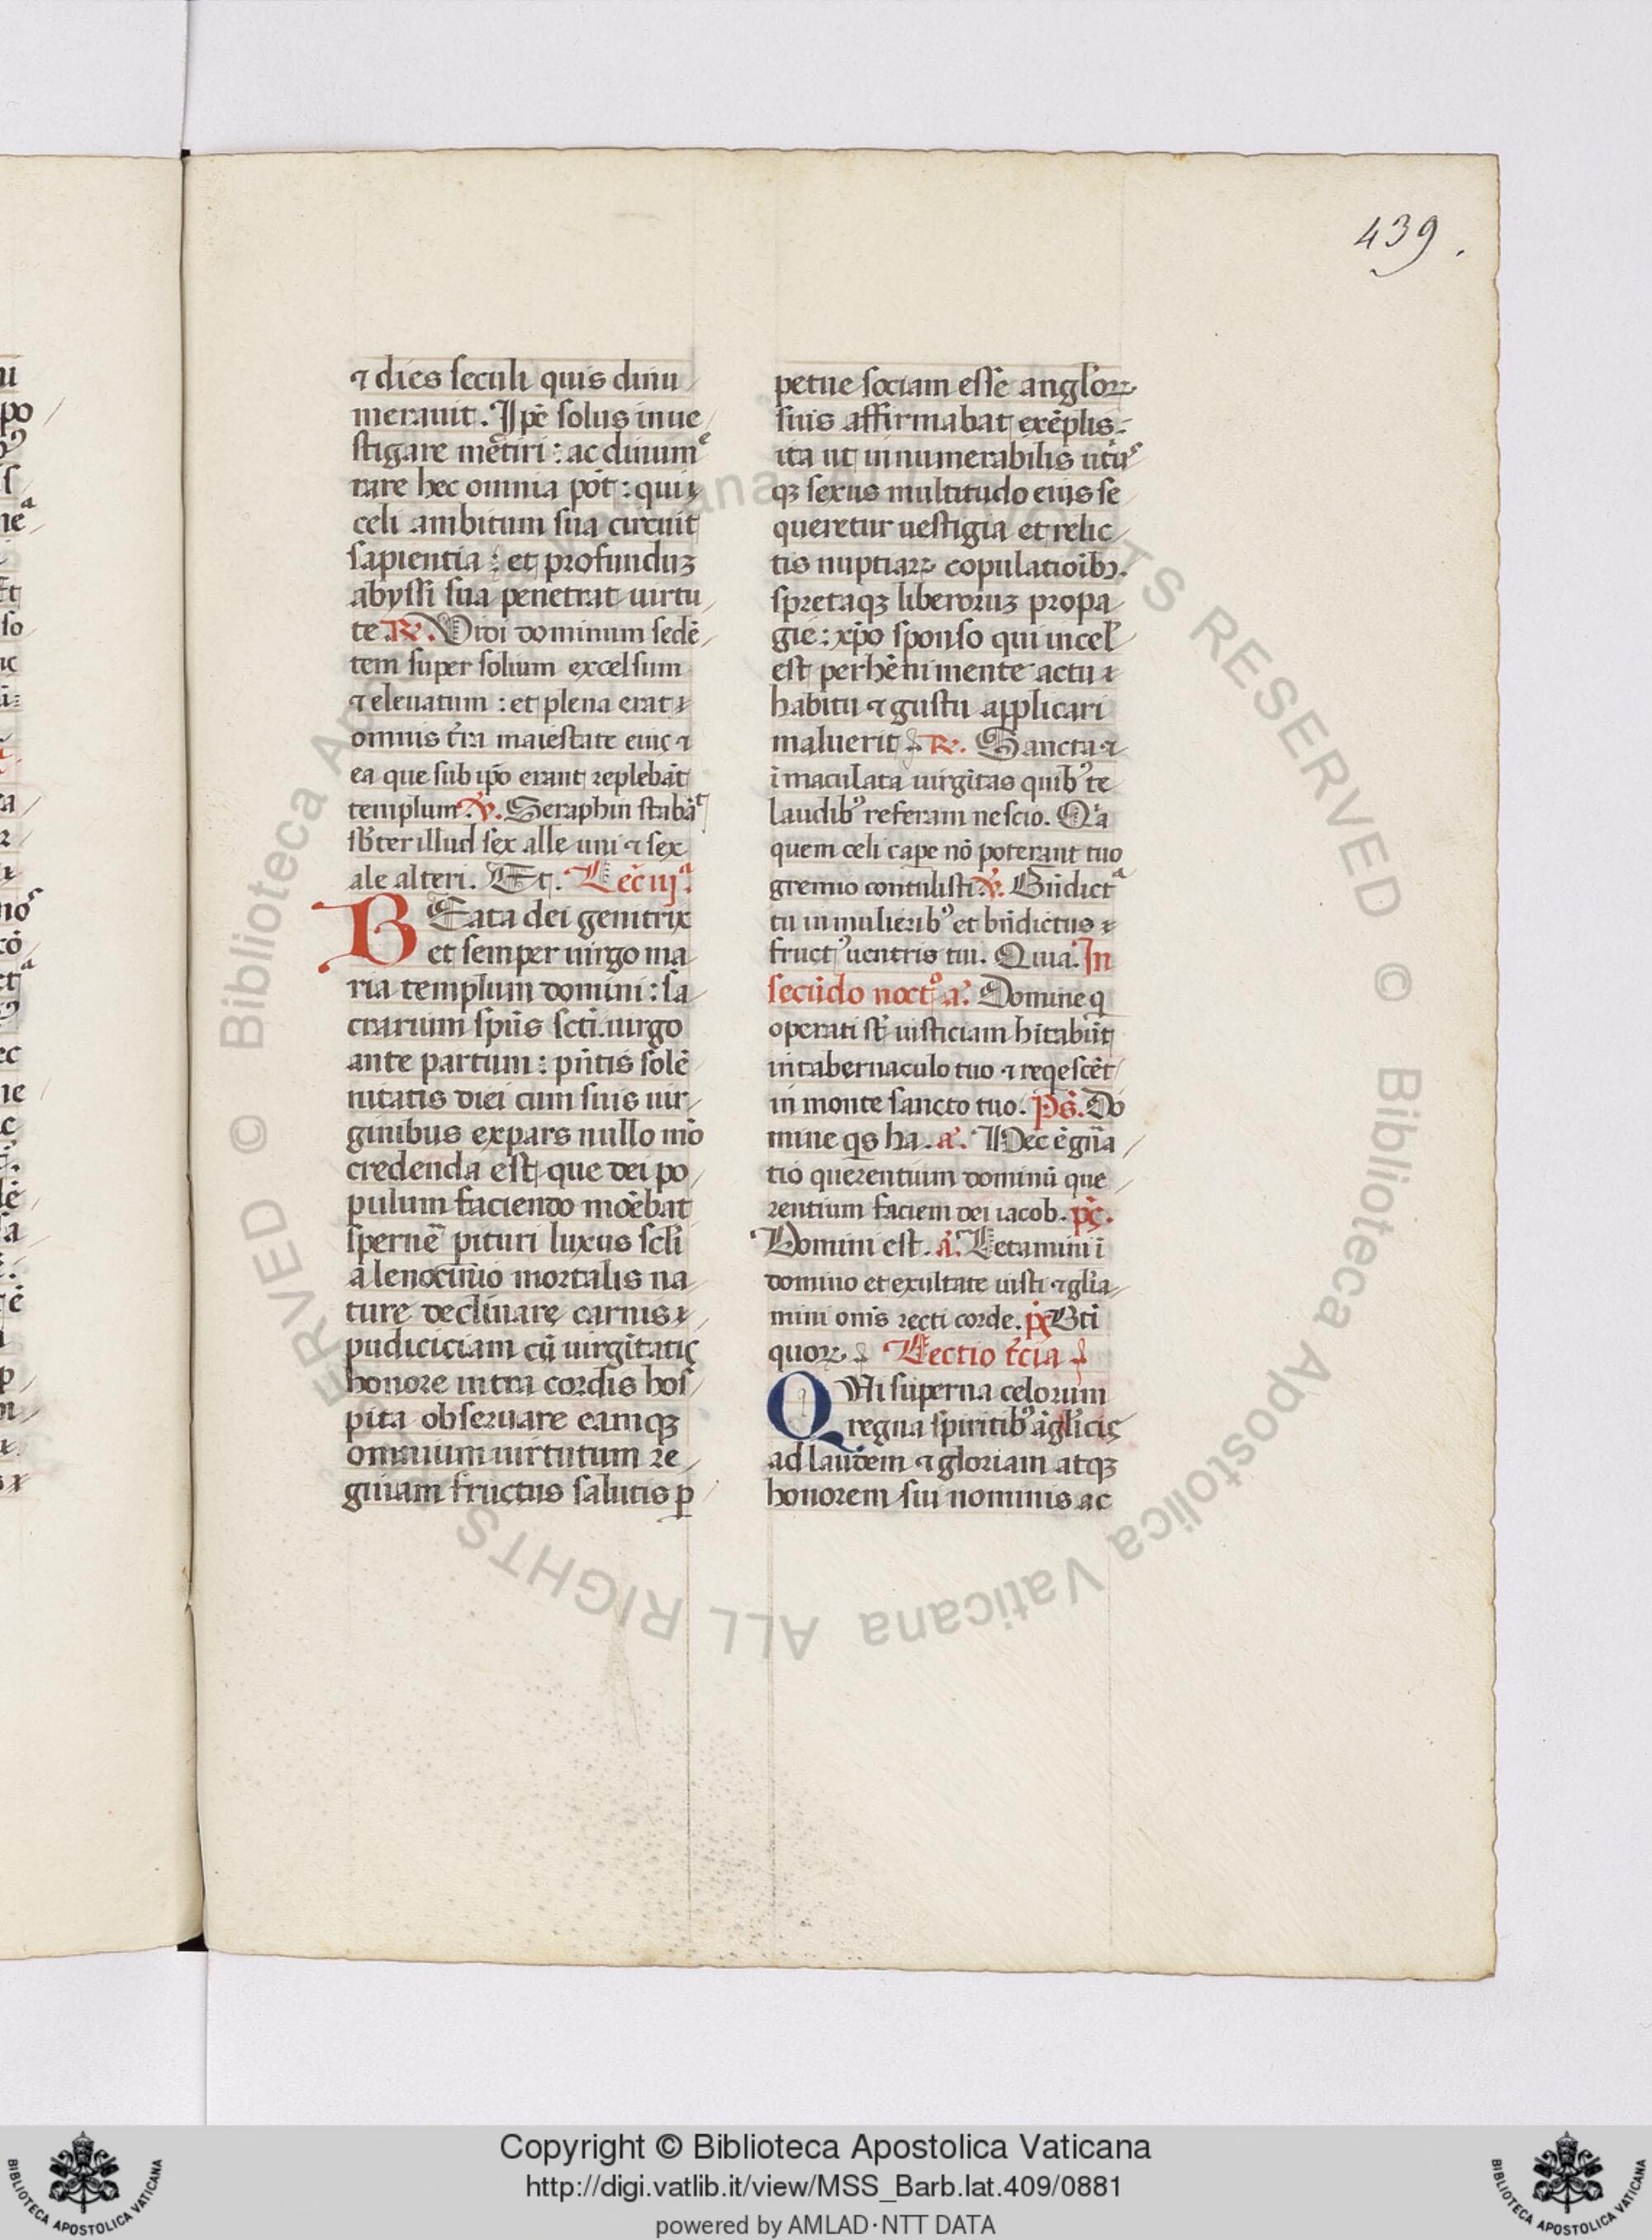 439.
⁊ dies seculi quis dinu
merauit. Ip̄e solus inue
stigare mētiri : ac dinume
rare hec omnia pōt : qui
celi ambitum sua circuit
sapientia : et profunduꝫ
abyssi sua penetrat uirtu
te R. Vidi dominum sedē
tem super solium excelsum
⁊ eleuatum : et plena erat
omnis t̄ra maiestate eius ⁊
ea que sub ip̄o erant replebāt
templum. ℣. Seraphin stabāt
sb̄ter illud sex alle uni ⁊ sex
ale alteri. Et. Lec̄ ijª
BEata dei genitrix
et semper uirgo ma
ria templum domini : sa
crarium sp̄us sc̄ti. uirgo
ante partum : pn̄tis solē
nitatis diei cum suis uir
ginibus expars nullo mō
credenda est, que dei po
pulum faciendo mōebat
sperne pituri luxus sc̄li
a lenocinio mortalis na
ture declinare carnis
pudiciciam cū uirgītatis
honore intra cordis hos
pita obseruare eamqꝫ
omnium uirtutum re
ginam fructus salutis ꝑ
petue sociam esse angl̄oꝝ
suis affirmabat exēplis
ita ut innumerabilis utius
qꝫ sexus multitudo eius se
queretur uestigia et relic
tis nuptiaꝝ copulatiōibꝫ.
spretaqꝫ liberoruꝫ propa
gīe : xp̄o sponso qui in cel̄
est perhēni mente actu
habitu ⁊ gustu applicari
maluerit R. Sancta ⁊
īmaculata uirgītas quibꝰ te
laudibꝰ referam nescio. Qia
quem celi cape nō poterant tuo
gremio contulisti ℣. Bn̄dicta
tu in mulieribꝰ et bn̄dictus
fructꝰ uentris tui. Quia. In
secūdo noct.º a. Domine q
operati st̄ iusticiam hītabūt
in tabernaculo tuo ⁊ reqescēt
in monte sancto tuo. Ps̄. Do
mine qs ha. a. Hec ē gn̄a
tio querentium dominū que
rentium faciem dei iacob. ps̄.
Domini est. a. Letamini ī
domino et exultate iusti ⁊ gl̄ia
mini om̄s recti corde. ps Bt̄i
quoꝝ Lectio t̄cia
QVi superna celorum
regna spiritibꝰ āgl̄icis
ad laudem ⁊ gloriam atqꝫ
honorem sui nominis ac
Copyright © Biblioteca Apostolica Vaticana
http://digi.vatlib.it/view/MSS_Barb.lat.409/0881
powered by AMLAD·NTT DATA